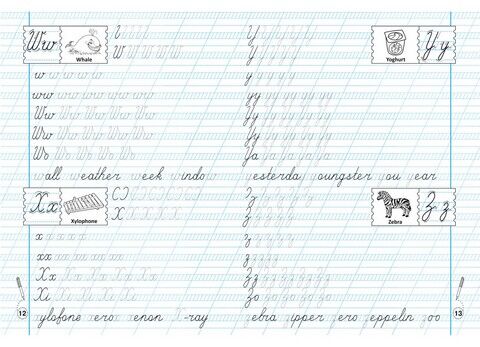 Ww
Whale
W W W W W
w w w w w
ww ww ww ww ww
Ww Ww Ww Ww Ww
wall weather week window
Xx
Xylophone
x x x x x
xx xx xx xx xx
Xx Xx Xx Xx Xx
Xi Xi Xi Xi Xi
xylofone xerox xenon X-ray
12
Yoghurt
Yy
Y Y Y Y Y Y
y y y y y y
yy yy yy yy yy yy
Yy Yy Yy Yy Yy Yy
Ya Ya Ya Ya Ya Ya
yesterday youngster you year
Zebra
Zz
zebra zipper zero zeppelin zoo
13